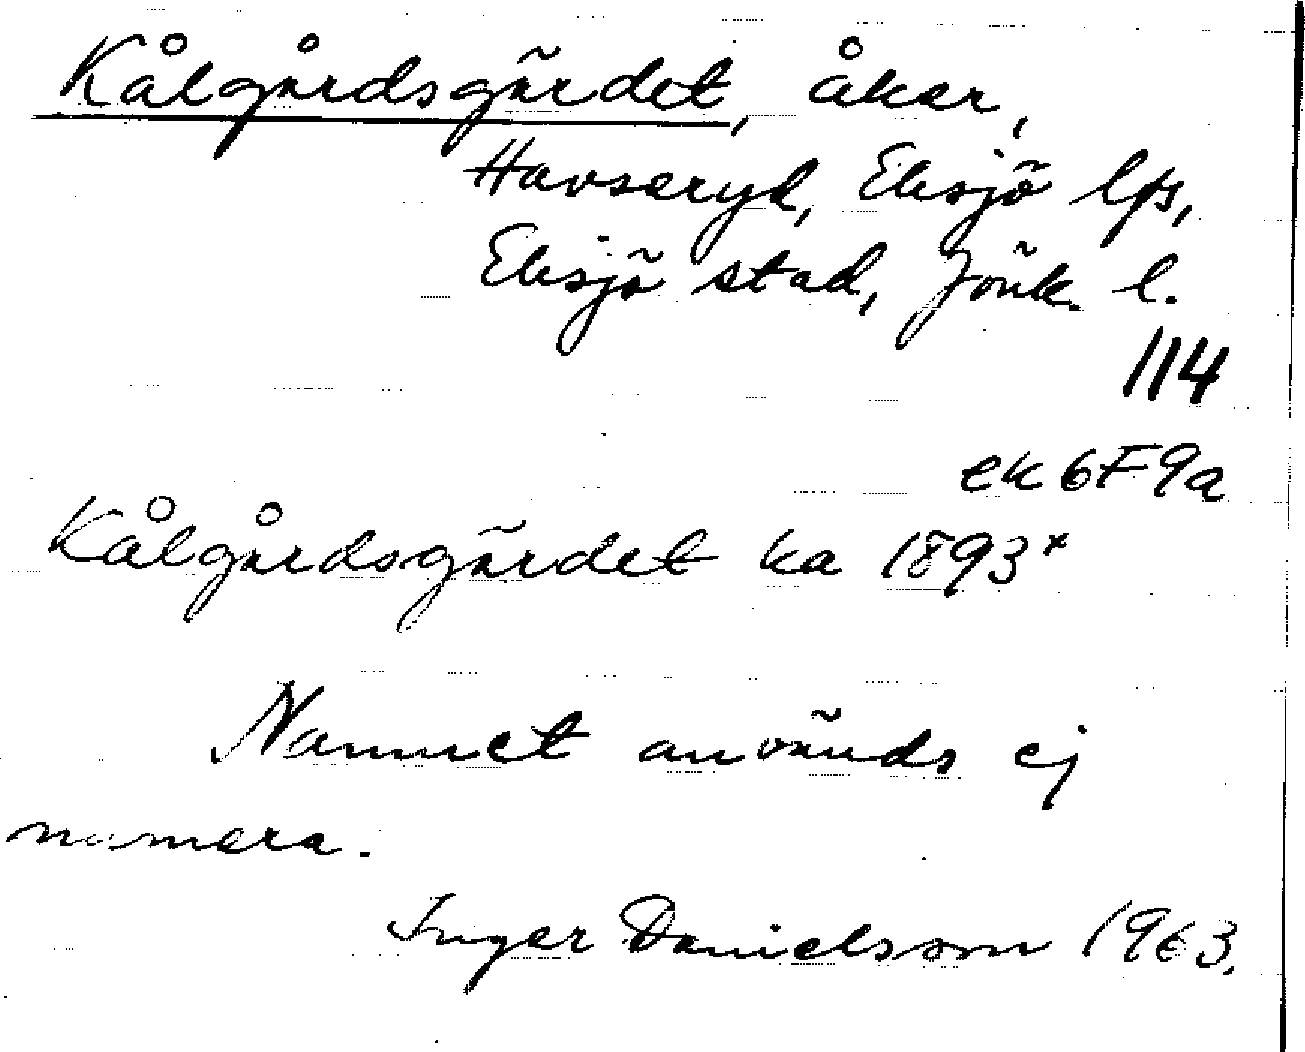 Kålgårdsgärdet, åker,
Havseryd, Eksjö lfs,
Eksjö stad, Jönk. l.
114
ek 6F9a
Kålgårdsgärdet ka 1893*
Namnet används ej
numera.
Inger Danielsson 1963.